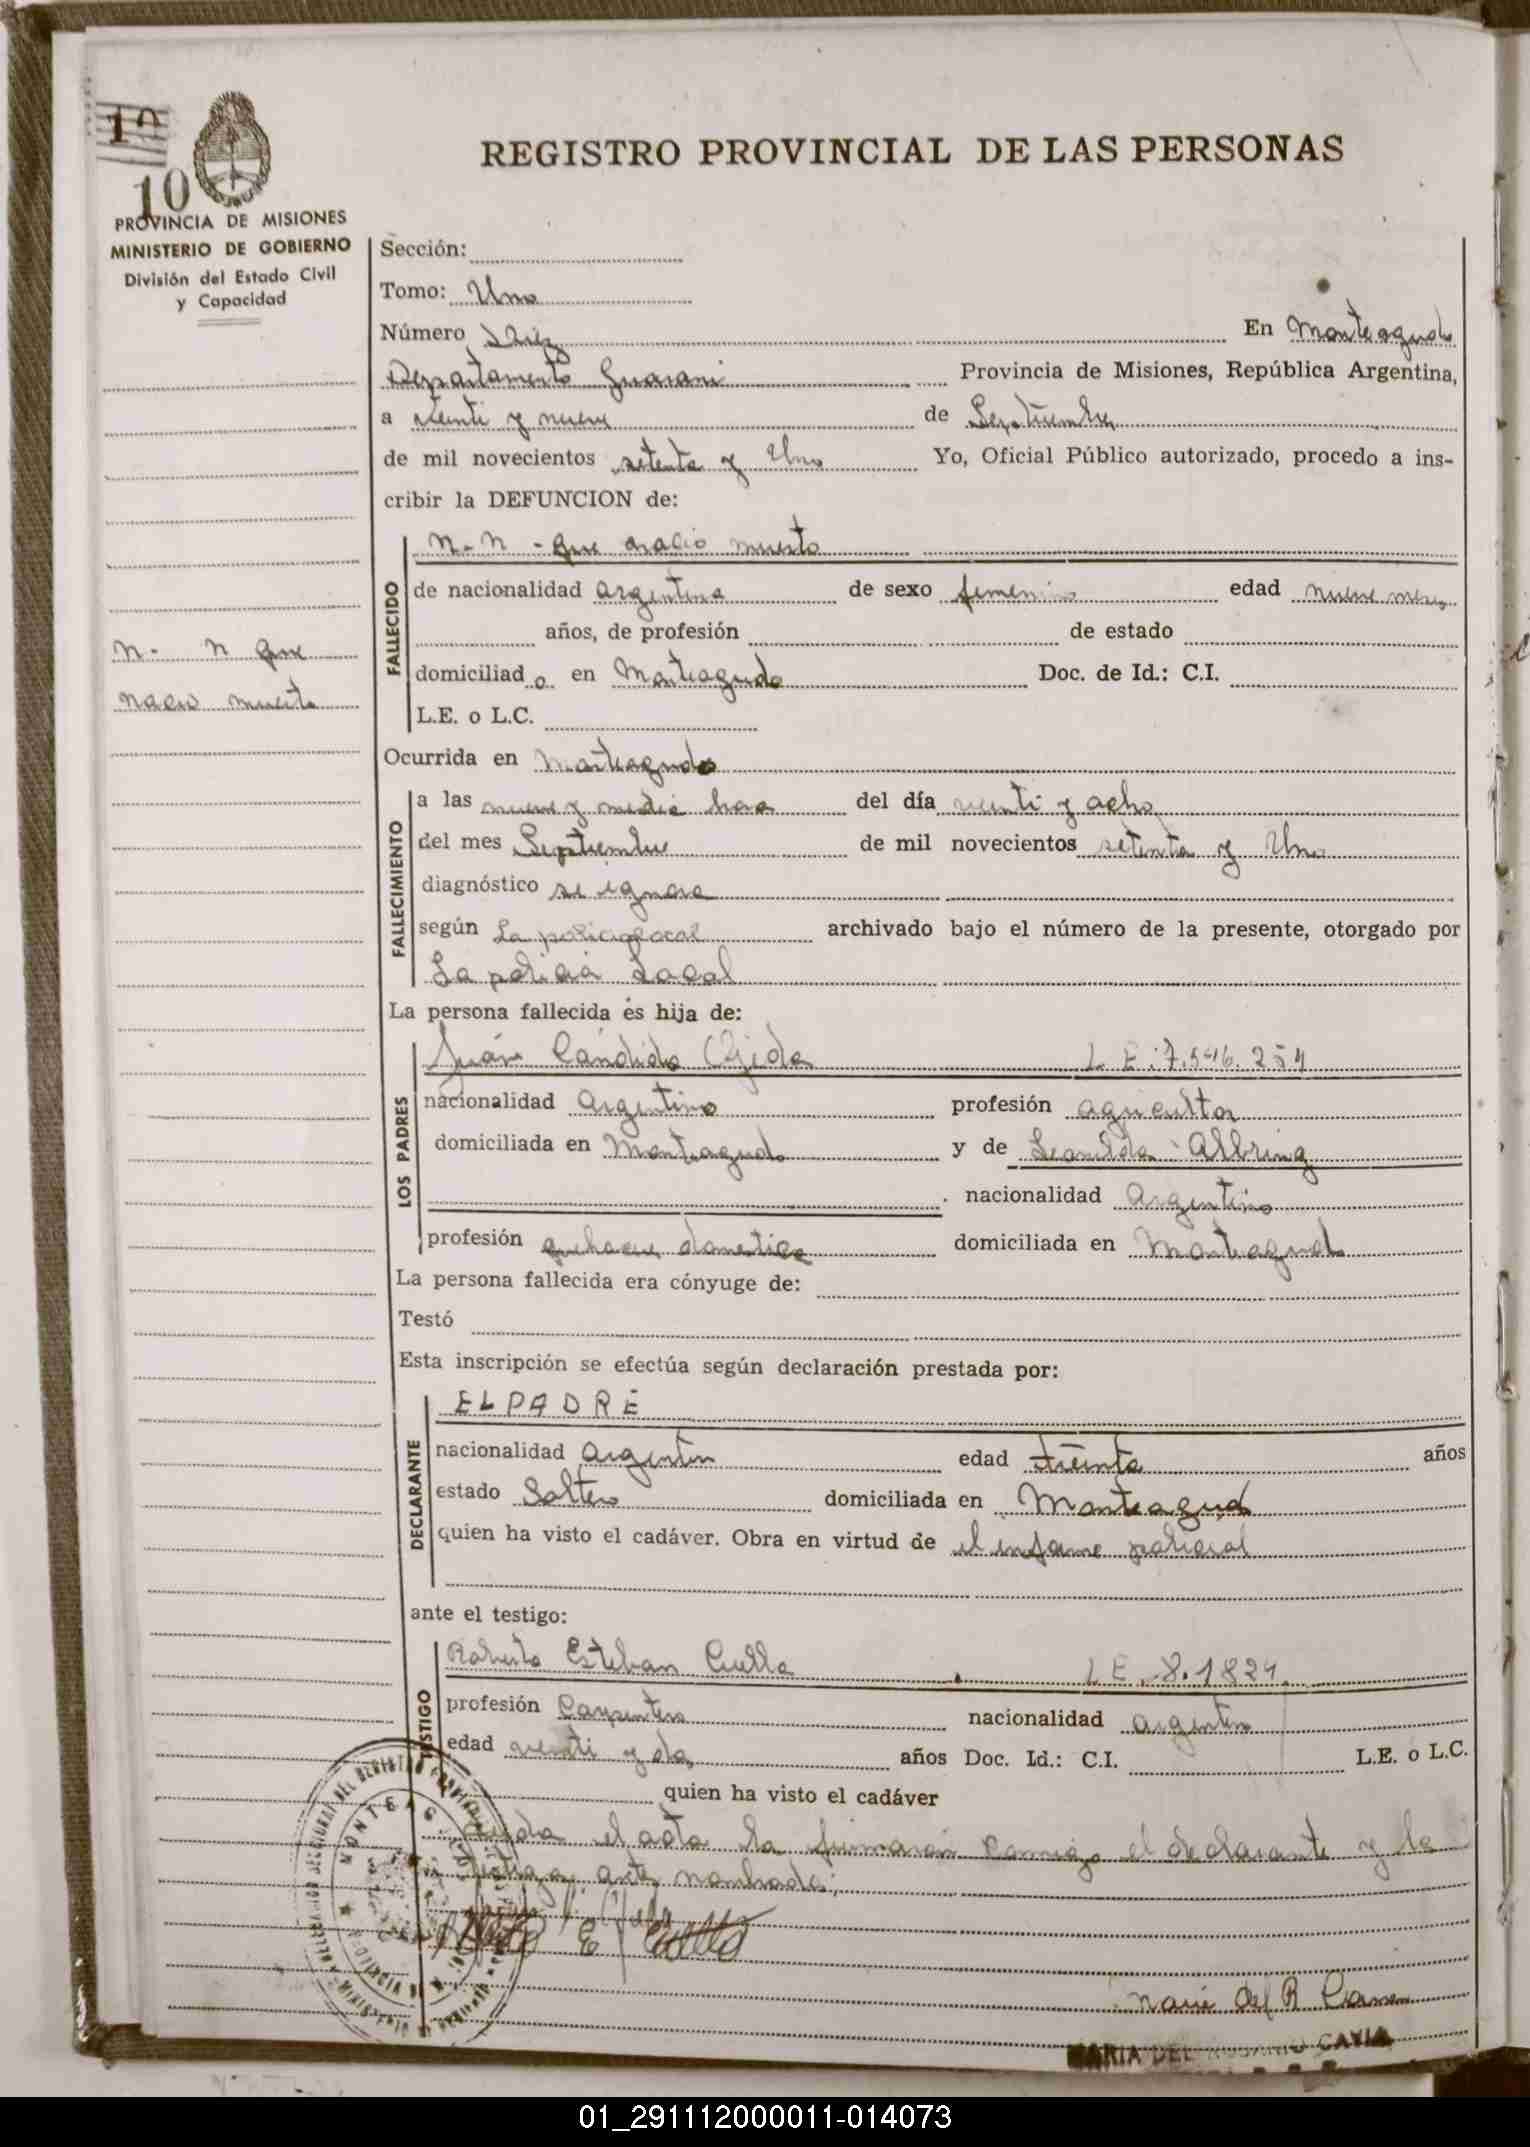 10
10
PROVINCIA DE MISIONES
MINISTERIO DE GOBIERNO
División del Estado Civil
y Capacidad
REGISTRO PROVINCIAL DE LAS PERSONAS
Sección:
Tomo: Uno
Número Diez En Monteagudo
Departamento Guarani Provincia de Misiones, República Argentina,
a veinti y nueve de Septiembre
de mil novecientos setenta y Uno Yo, Oficial Público autorizado, procedo a ins-
cribir la DEFUNCION de:
N-N - que nacio muerto
FALLECIDO
de nacionalidad argentina de sexo femenino edad nueve meses
años, de profesión de estado
N- N que
nacio muerto
domiciliad o en Monteagudo Doc. de Id.: C.I.
L.E. o L.C.
Ocurrida en Monteagudo
FALLECIMIENTO
a las nueve y media hora del día veinti y ocho
del mes Septiembre de mil novecientos setenta y Uno
diagnóstico se ignora
según La policia local archivado bajo el número de la presente, otorgado por
La policia Local
La persona fallecida es hija de:
LOS PADRES
Juán Cándido Ojeda L E: 7.546.254
nacionalidad Argentino profesión agricultor
domiciliada en Monteagudo y de Leonilda Albring
nacionalidad Argentino
profesión quehacer domestico domiciliada en Monteagudo
La persona fallecida era cónyuge de:
Testó
Esta inscripción se efectúa según declaración prestada por:
DECLARANTE
EL PADRE
nacionalidad Argentin edad treinta años
estado Soltero domiciliada en Monteagud
quien ha visto el cadáver. Obra en virtud de el informe policial
ante el testigo:
TESTIGO
Roberto Esteban Cuella L E 8.1824.
profesión Carpintero nacionalidad argentino
edad veinti y dos años Doc. Id.: C.I. L.E. o L.C.
quien ha visto el cadáver
Leida el acta la firmaran conmigo el declarante y lo
testigo antes nombrado;
MONTEAGUDO
Marie del R Cavia
MARIA DEL ROSARIO CAVIA
01_291112000011-014073